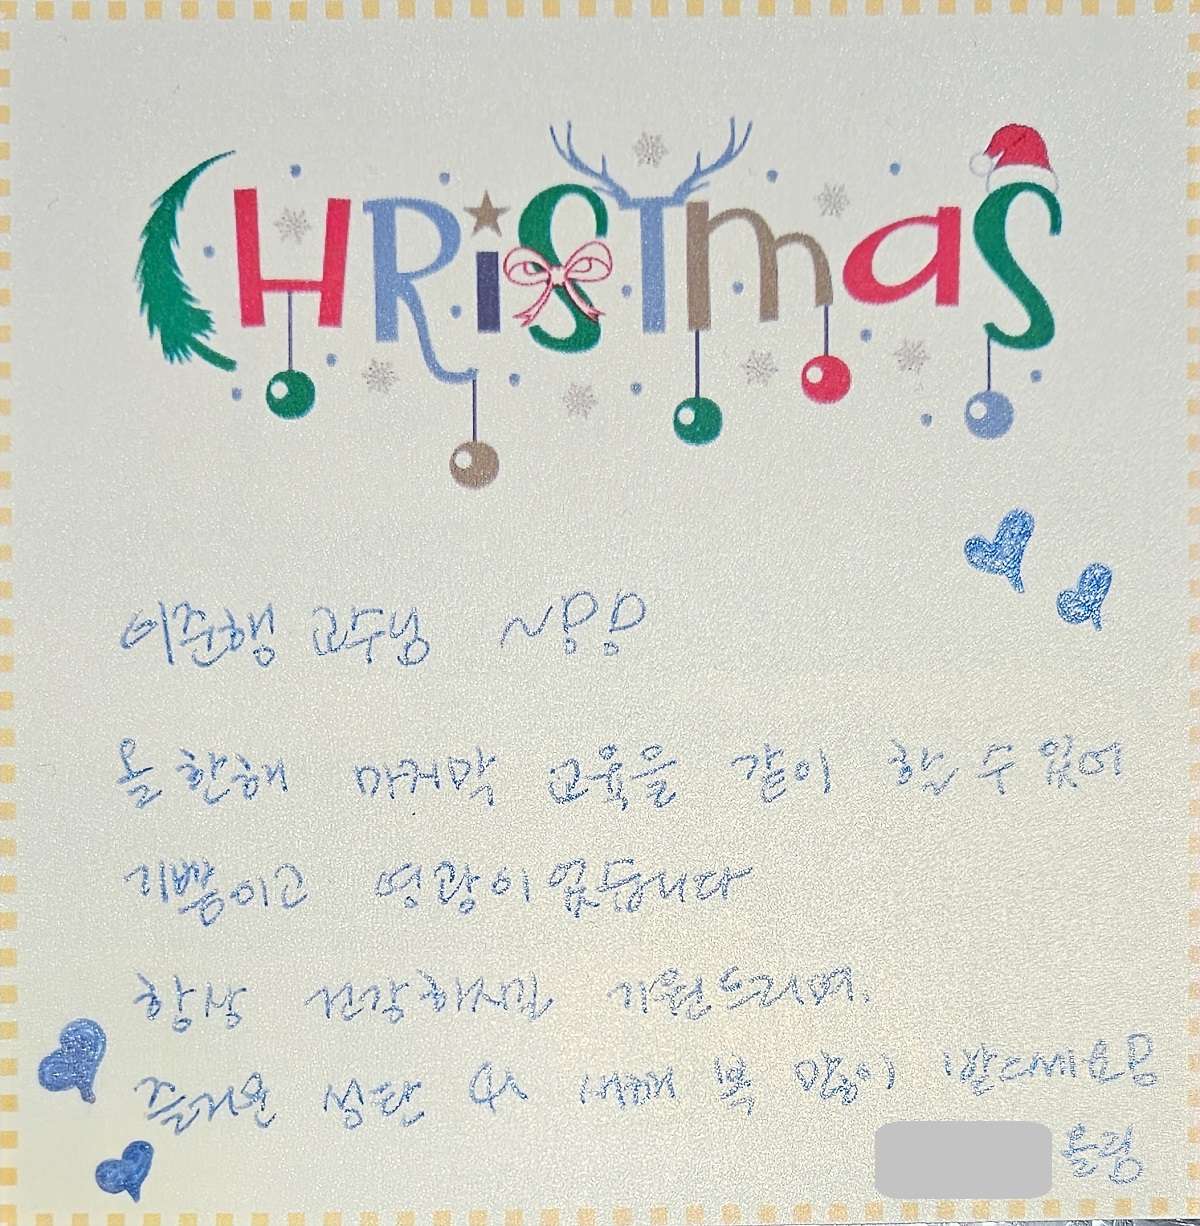 CHRiSTmas
이준행 교수님 ~♡♡
올 한해 마지막 교육을 같이 할 수 있어
기쁨이고 영광이었습니다
항상 건강하시길 기원드리며.
즐거운 성탄 & 새해 복 많이 받으세요♡
올림